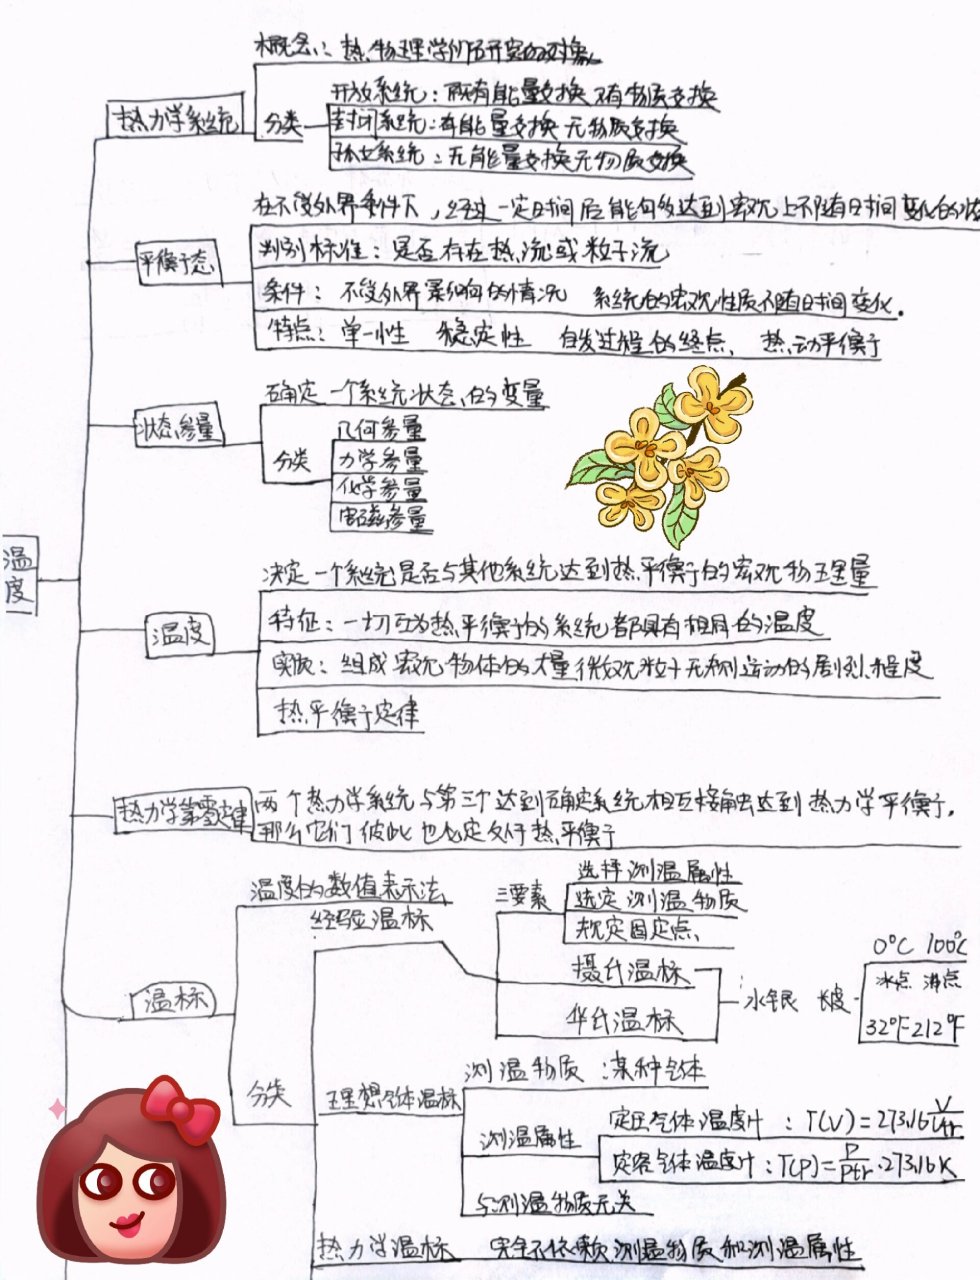 概念：热物理学所研究的对象
热力学系统
分类
开放系统：既有能量交换又有物质交换
封闭系统：有能量交换无物质交换
孤立系统：无能量交换无物质交换
在不受外界条件下，经过一定时间后能够达到宏观上不随时间变化的状
平衡态
判别标准：是否存在热流或粒子流
条件：不受外界影响的情况 系统的宏观性质不随时间变化.
特点：单一性 稳定性 自发过程的终点、热动平衡
确定一个系统状态的变量
状态参量
分类
几何参量
力学参量
化学参量
电磁参量
温度
决定一个系统是否与其他系统达到热平衡的宏观物理量
温度
特征：一切互为热平衡的系统都具有相同的温度
实质：组成宏观物体的大量微观粒子无规则运动的剧烈程度
热平衡定律
热力学第零定律
两个热力学系统与第三个达到确定系统相互接触达到热力学平衡.
那么它们彼此也必定处于热平衡
温标
温度的数值表示法
分类
经验温标
三要素
选择测温属性
选定测温物质
规定固定点
摄氏温标
华氏温标
水银 长度
0°C 100°C
冰点 沸点
32°F 212°F
理想气体温标
测温物质：某种气体
测温属性
定压气体温度计：T(V)=273.16 V/Vtr
定容气体温度计：T(P)=P/Ptr·273.16K
与测温物质无关
热力学温标 完全不依赖测温物质和测温属性